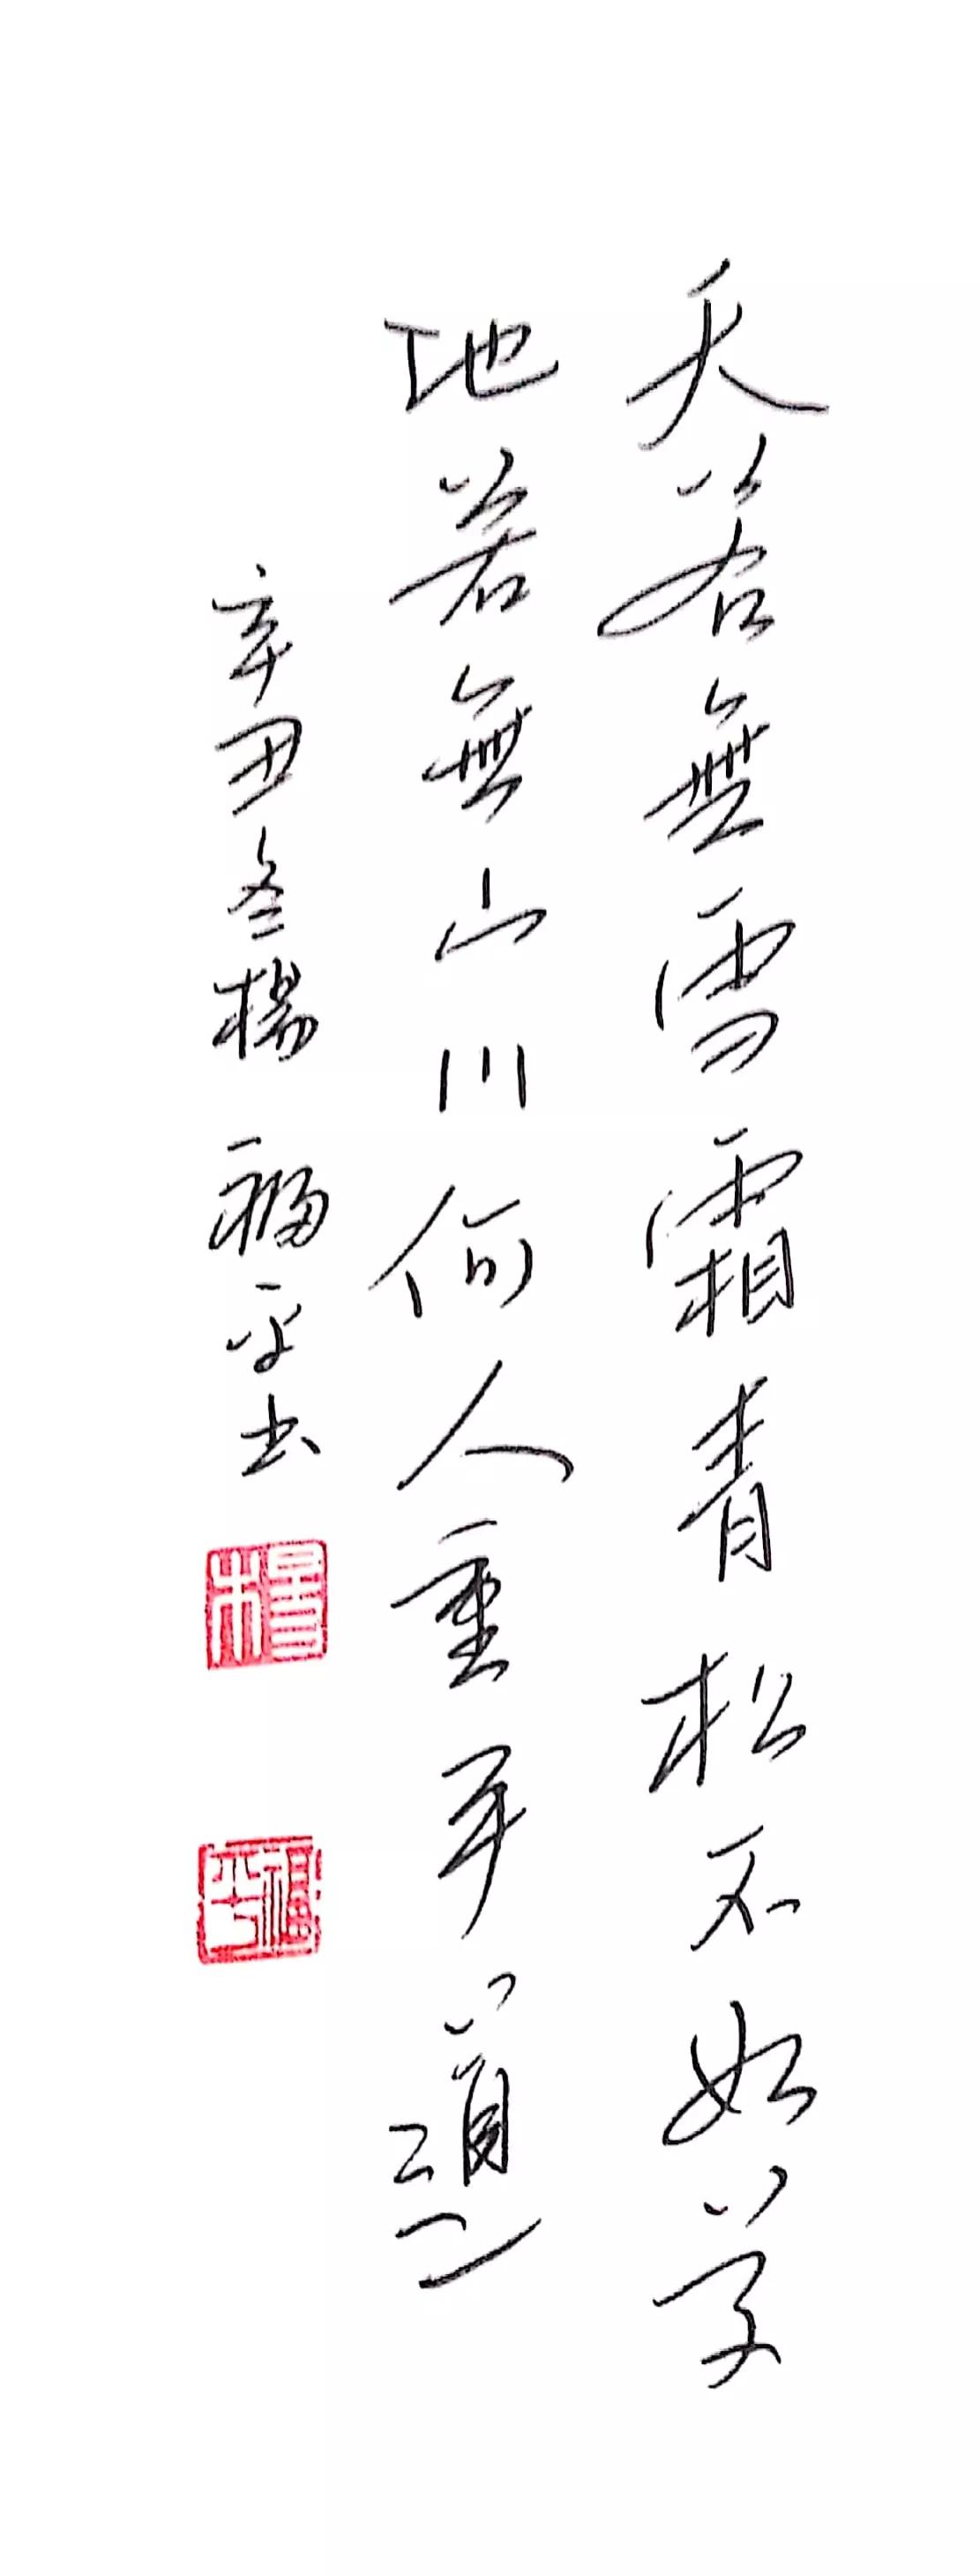 天若無雪霜青松不如草
地若無山川何人重平道
辛丑冬楊福平書
楊
福平